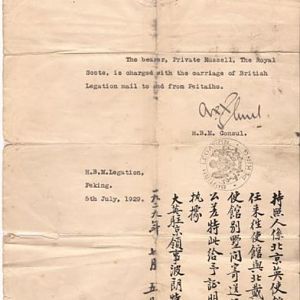 The bearer, Private Russell, The Royal
Scots, is charged with the carriage of British
Legation mail to and from Peitaiho.
H.B.M. Consul.
H.B.M.Legation,
Peking.
5th July, 1929.
持照人係北京英使
任來往使館與北戴
使館別墅間寄遞
公差特此給予證明
執據
大英駐京領事波朗特
一九二九年七月五